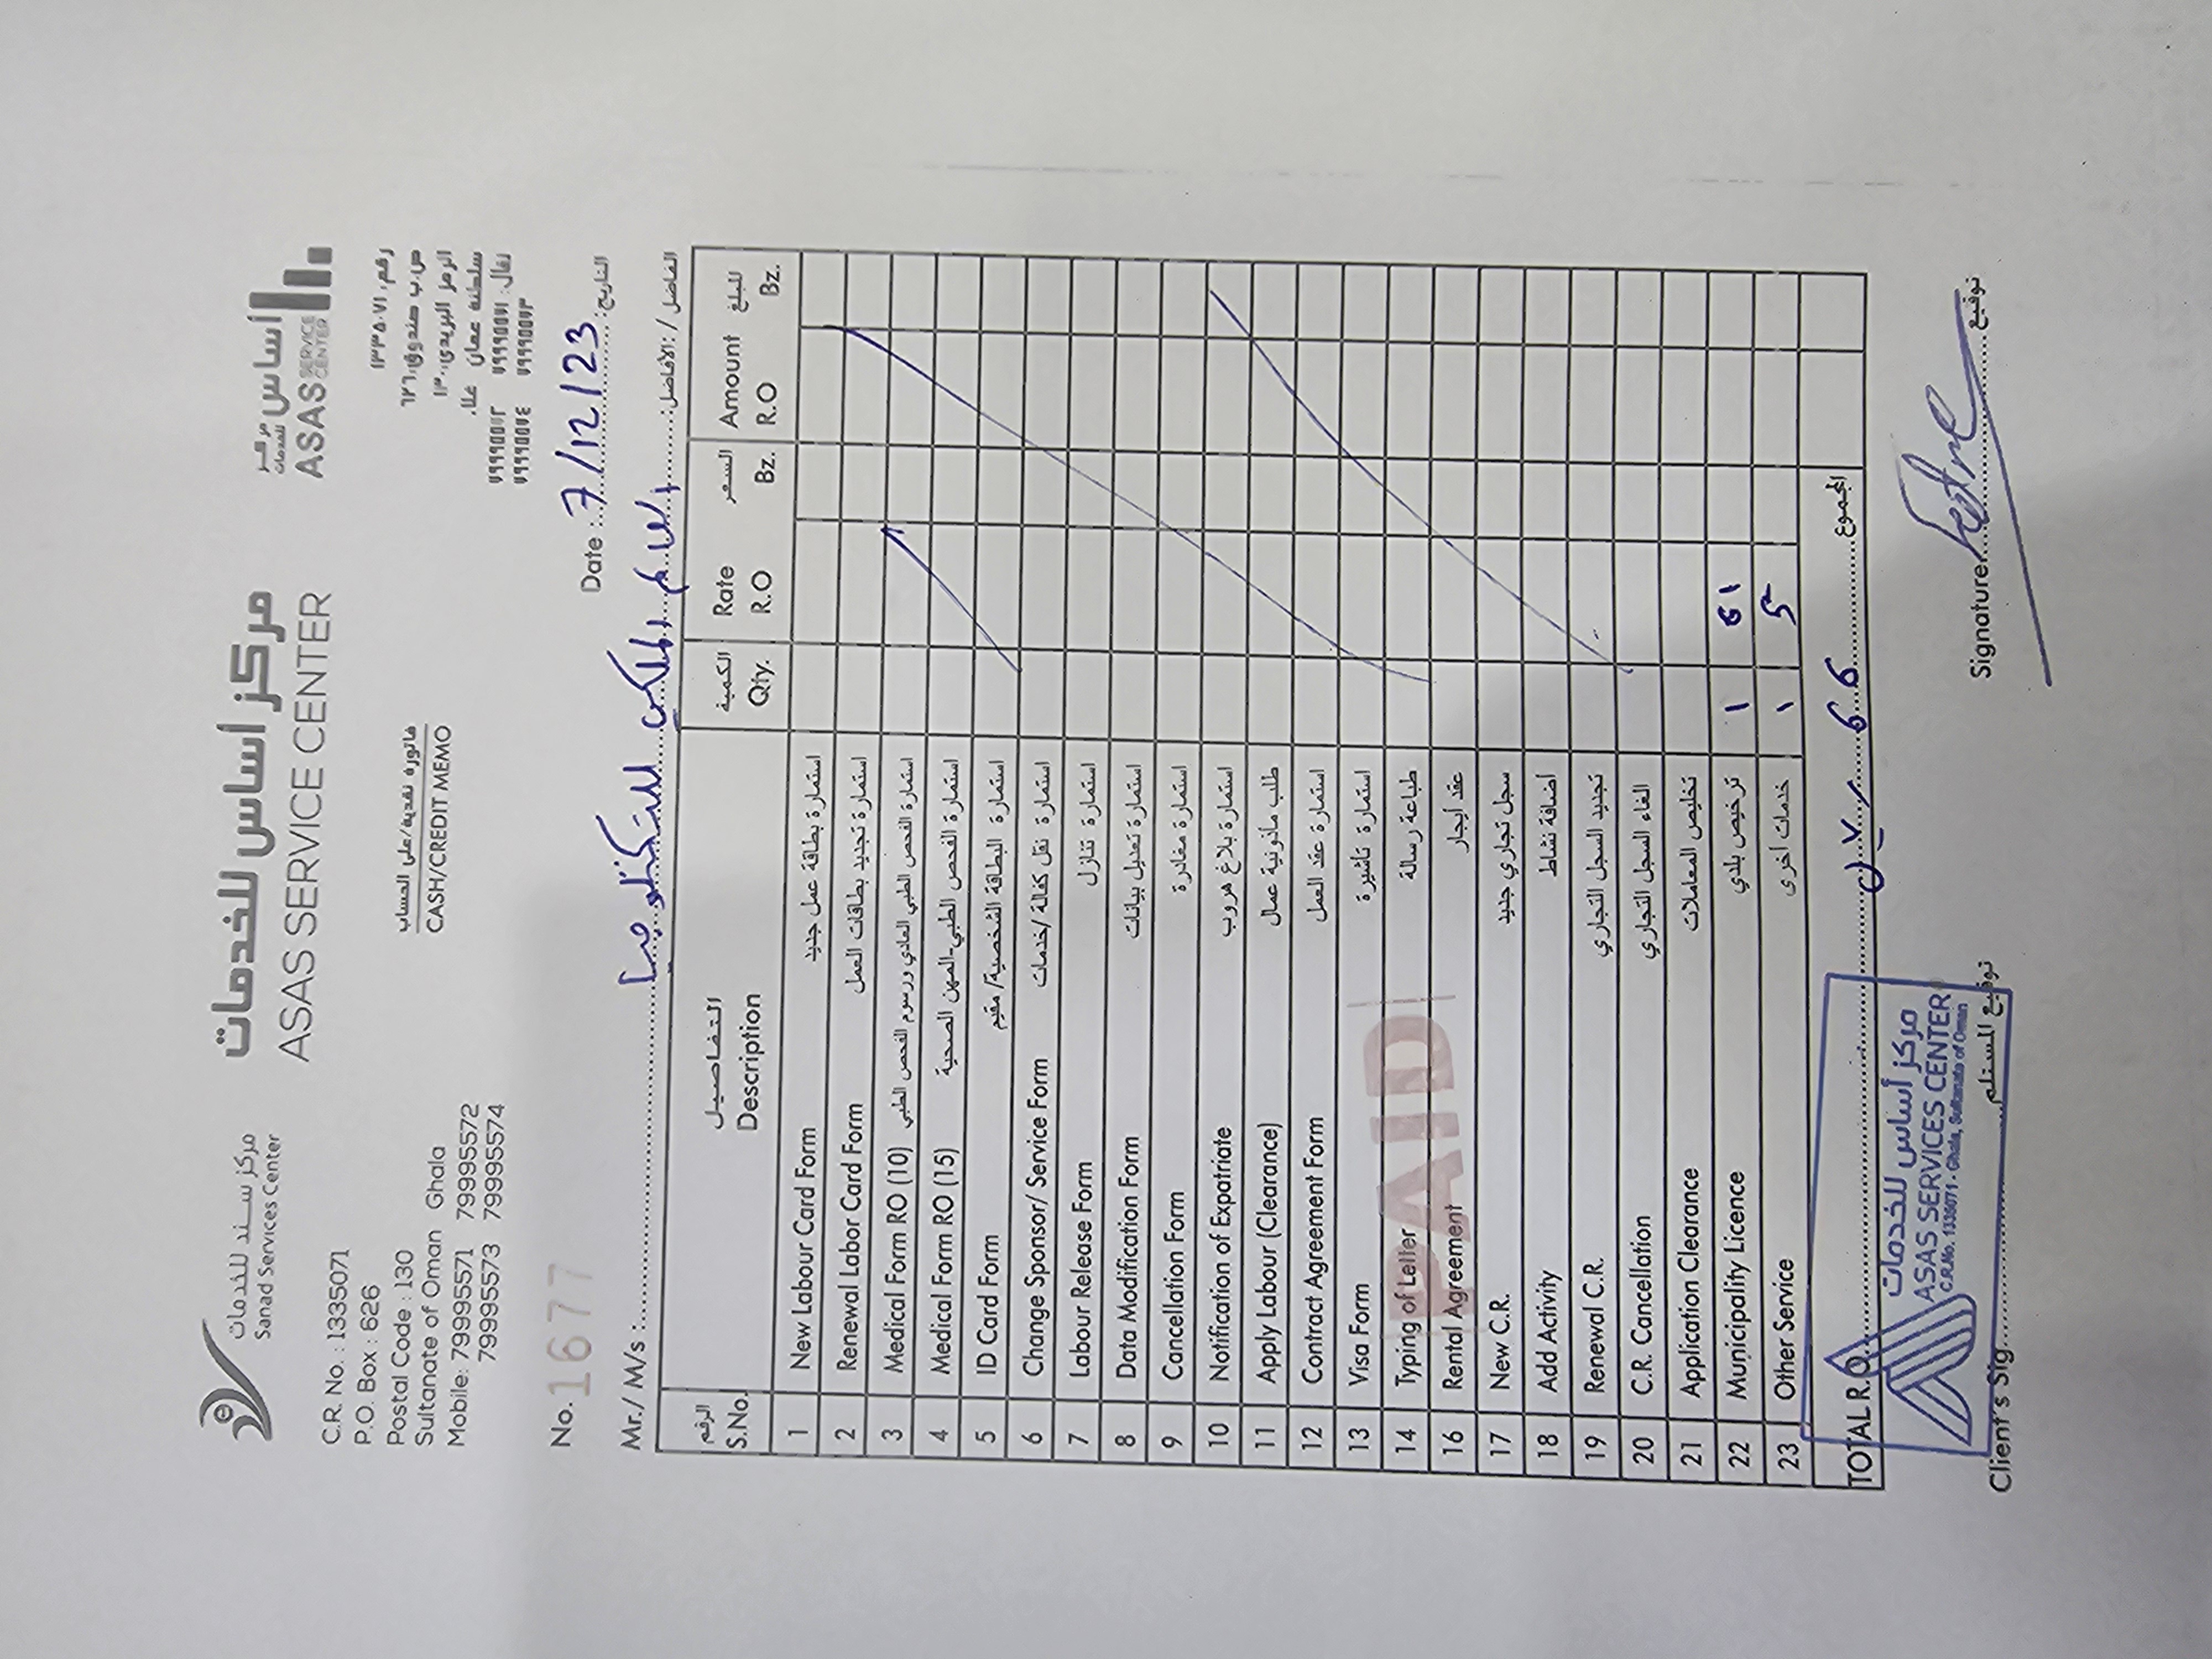 مركز سند للخدمات
Sanad Services Center
مركز أساس للخدمات
ASAS SERVICE CENTER
أساس مركز للخدمات
ASAS SERVICE CENTER
C.R. No. : 1335071
P.O. Box : 626
Postal Code : 130
Sultanate of Oman Ghala
Mobile: 79995571 79995572
79995573 79995574
فاتورة نقدية/على الحساب
CASH/CREDIT MEMO
رقم: ١٣٣٥٠٧١
ص.ب صندوق: ٦٢٦
الرمز البريدي: ١٣٠
سلطنة عمان غلا.
نقال: ٧٩٩٩٥٥٧١ ٧٩٩٩٥٥٧٢
٧٩٩٩٥٥٧٣ ٧٩٩٩٥٥٧٤
No. 1677
Date : 7/12/23 التاريخ:
Mr./ M/s : الفاضل / الأفاضل:
الرقم التفاصيل الكمية السعر المبلغ
S.No. Description Qty. Rate R.O Bz. Amount R.O Bz.
1 New Labour Card Form استمارة بطاقة عمل جديد
2 Renewal Labor Card Form استمارة تجديد بطاقات العمل
3 Medical Form RO (10) استمارة الفحص الطبي العادي ورسوم الفحص الطبي
4 Medical Form RO (15) استمارة الفحص الطبي-المهن الصحية
5 ID Card Form استمارة البطاقة الشخصية/ مقيم
6 Change Sponsor/ Service Form استمارة نقل كفالة /خدمات
7 Labour Release Form استمارة تنازل
8 Data Modification Form استمارة تعديل بيانات
9 Cancellation Form استمارة مغادرة
10 Notification of Expatriate استمارة بلاغ هروب
11 Apply Labour (Clearance) طلب مأذونية عمال
12 Contract Agreement Form استمارة عقد العمل
13 Visa Form استمارة تأشيرة
14 Typing of Letter طباعة رسالة
16 Rental Agreement عقد أيجار
17 New C.R. سجل تجاري جديد
18 Add Activity أضافة نشاط
19 Renewal C.R. تجديد السجل التجاري
20 C.R. Cancellation الغاء السجل التجاري
21 Application Clearance تخليص المعاملات
22 Municipality Licence ترخيص بلدي 1 61
23 Other Service خدمات أخرى 1 5
PAID
TOTAL R.O. 66 المجموع
مركز أساس للخدمات
ASAS SERVICES CENTER
C.R.No. 1335071 - Ghala, Sultanate of Oman
Client's Sig. توقيع المستلم
Signature توقيع